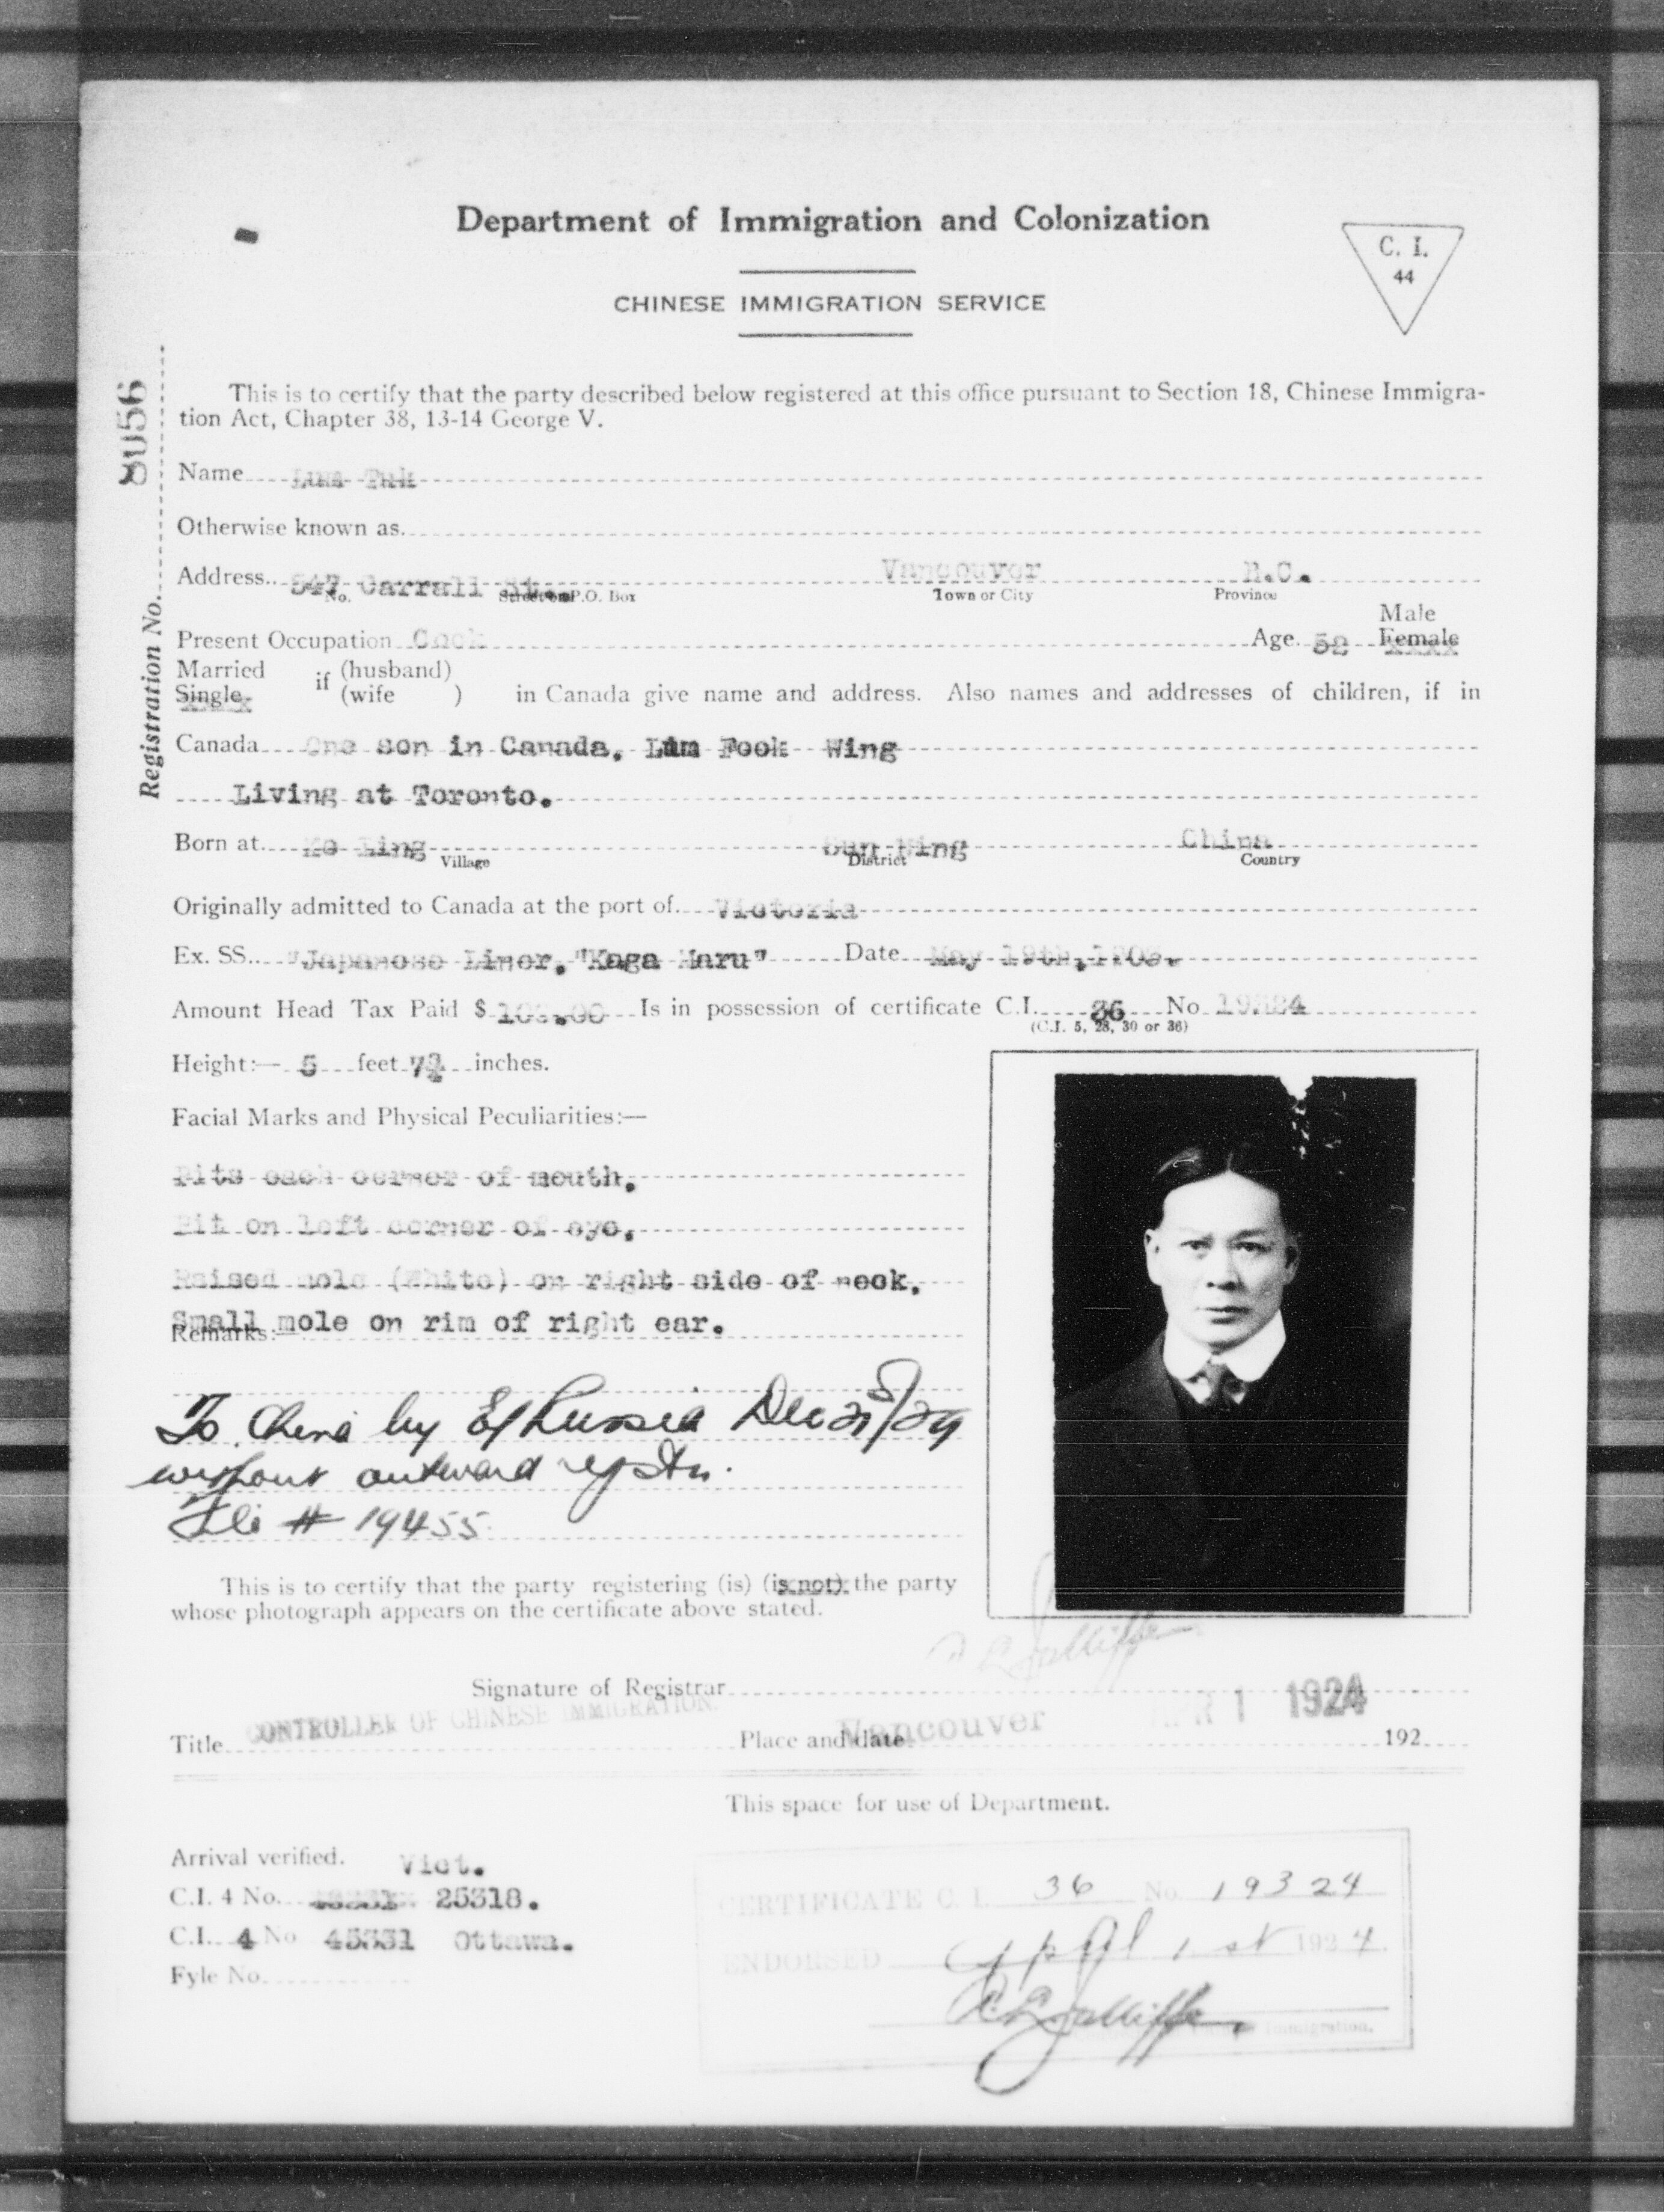 Department of Immigration and Colonization
C. I.
44
CHINESE IMMIGRATION SERVICE
8056
Registration No.
This is to certify that the party described below registered at this office pursuant to Section 18, Chinese Immigra-
tion Act, Chapter 38, 13-14 George V.
Name
Otherwise known as
Address 547 Carrall St. Vancouver B.C.
No. Street or P.O. Box Town or City Province
Male
Present Occupation Cook Age 52 Female
Married if (husband)
Single (wife ) in Canada give name and address. Also names and addresses of children, if in
Canada One son in Canada, Lum Fook Wing
Living at Toronto.
Born at Sun Ning China
Village District Country
Originally admitted to Canada at the port of Victoria
Ex. SS. "Japanese Liner, "Kaga Maru" Date May 19th,
Amount Head Tax Paid $ 100.00 Is in possession of certificate C.I. 36 No 19324
(C.I. 5, 28, 30 or 36)
Height:— 5 feet 7¾ inches.
Facial Marks and Physical Peculiarities:—
Pits each corner of mouth.
Pit on left corner of eye.
Raised mole (White) on right side of neck.
Small mole on rim of right ear.
Remarks:
To China by E/Russia Dec /24
without outward regstn.
File # 19455
This is to certify that the party registering (is) (is not) the party
whose photograph appears on the certificate above stated.
Signature of Registrar
Title CONTROLLER OF CHINESE IMMIGRATION. Place and date Vancouver APR 1 1924 192
This space for use of Department.
Arrival verified. Vict.
C.I. 4 No. 25318.
C.I. 4 No 45331 Ottawa.
Fyle No.
CERTIFICATE C. I. 36 No. 19324
ENDORSED April 1st 1924.
Immigration.